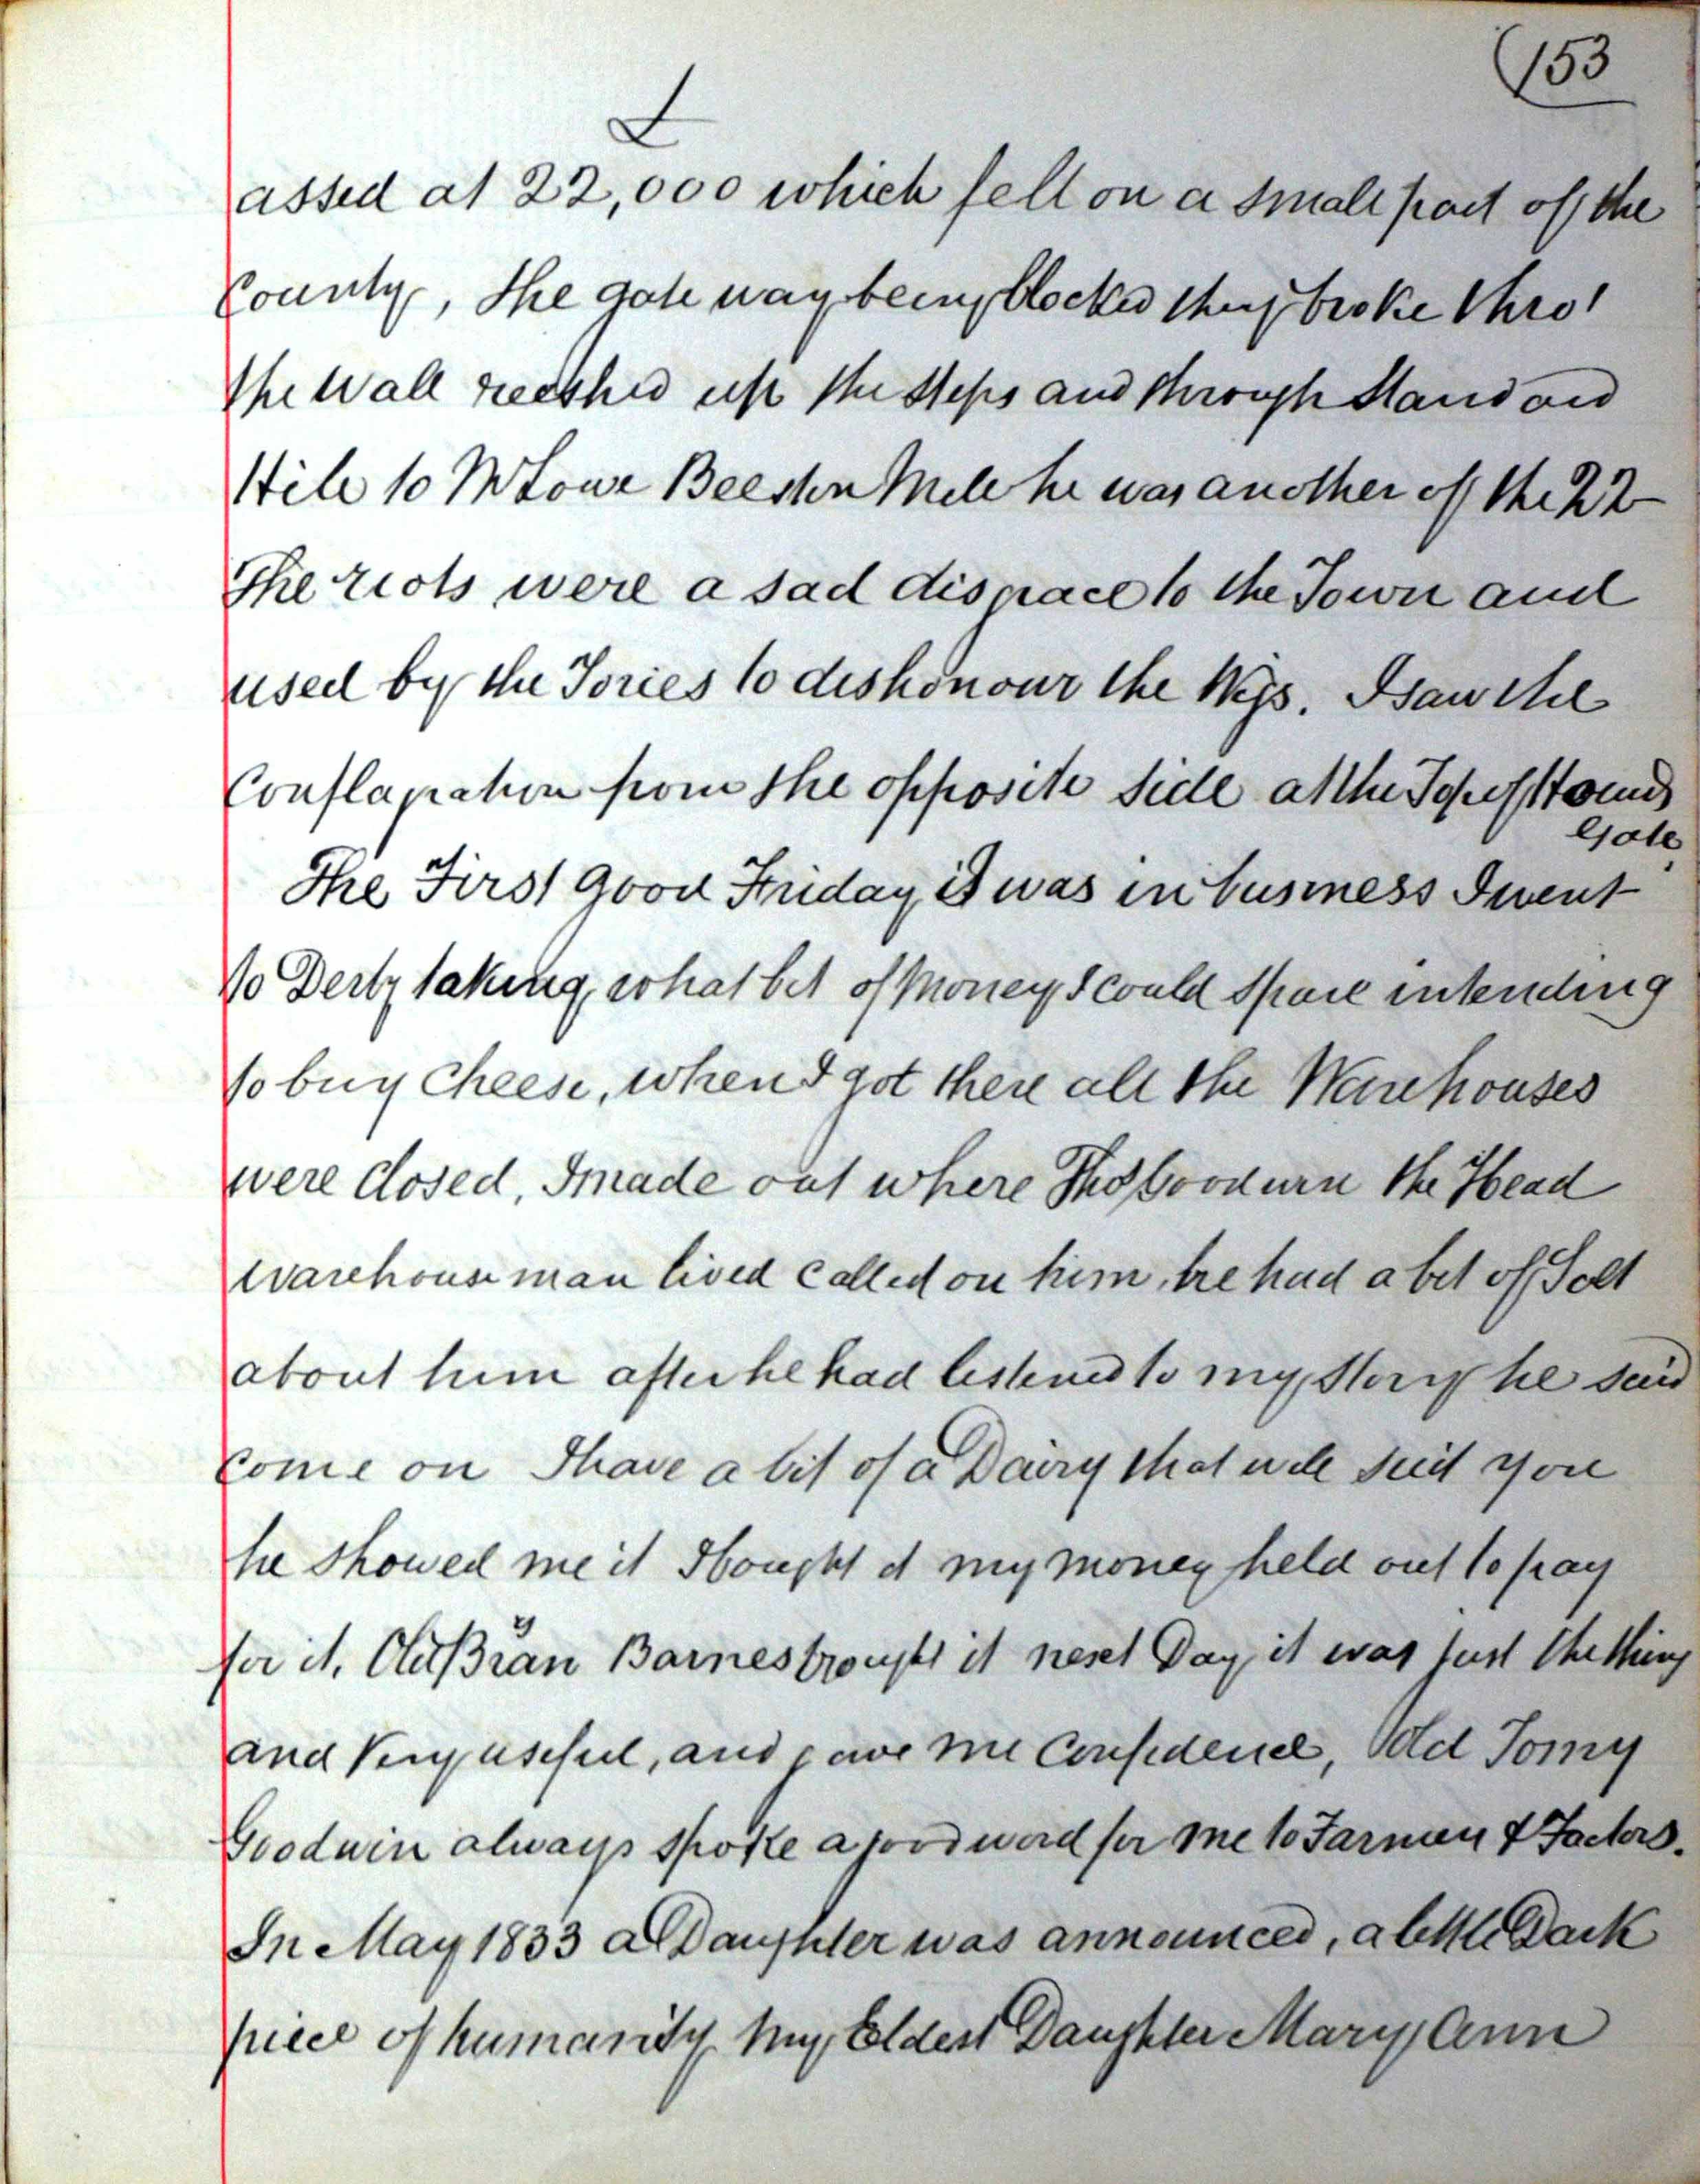 (153
£
assed at 22,000 which fell on a small part of the
County, the gate way being blocked they broke thro'
the Wall rushed up the steps and through Standard
Hill to Mr Lowe Beeston Mill he was another of the 22
The riots were a sad disgrace to the Town and
used by the Tories to dishonour the Wigs. I saw the
Conflagration from the opposite side at the Top of Hounds
Gate.
The First Good Friday it was in business I went
to Derby taking what bit of Money I could spare intending
to buy Cheese, when I got there all the Warehouses
were Closed, I made out where Thos Goodwin the Head
warehouseman lived called on him, he had a bit of Salt
about him after he had listened to my story he said
Come on I have a bit of a Dairy that will suit you
he showed me it I bought it my money held out to pay
for it, Old Bran Barnes brought it next Day, it was just the thing
and Very useful, and gave me Confidence, Old Tomy
Goodwin always spoke a good word for me to Farmers & Factors.
In May 1833 a Daughter was announced, a little Dark
piece of humanity My Eldest Daughter Mary Ann